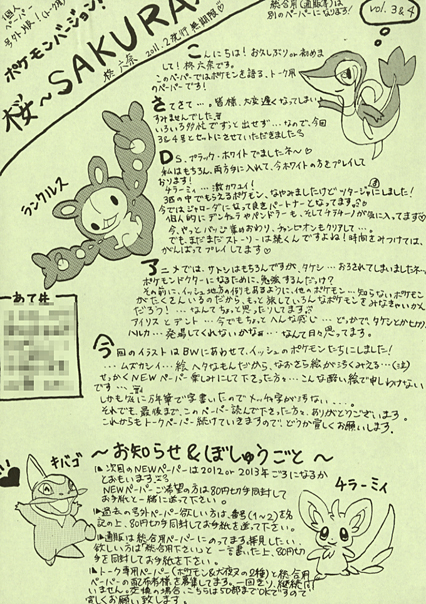 個人ペーパー
号外版!(トーク版)
ポケモンバージョン!
桜~SAKURA~
柊 六奈
2011.2発行 無期限
総合用(通販等)は
別のペーパーになります!
vol.3&4
こんにちは!お久しぶりor初めまして!柊六奈です。
このペーパーではポケモンを語る、トーク用ペーパーです!
さてさて…。皆様、大変遅くなってしまいすみませんでした
なので、今回3&4号とセットにさせていただきました
DS.ブラック・ホワイトでましたネ~♡
私はもちろん、両方手に入れて、今ホワイトの方をプレイしております!
チラーミィ…激カワェイ!
3匹の中でもらえるポケモン、なやみましたけどツタージャにしました!
今ではジャローダになって良きパートナーとなってます。
個人的にデンチュラやペンドラーも、そしてケチャーノが仲に入ってます
今、やっとバッジ集めおわり、チャンピオンもクリアして…。
でもまだまだストーリーは続くんですよね!時間をみつけては、がんばってプレイしてます♡
ランクルス
アニメでは、サトシはもちろんですが、タケシ…おろされてしまいましたネ…。
ポケモンドクターになるために、勉強するんだっけ?
その前に、イッシュ地方(の何)もあるように、他のポケモン…知らないポケモンがたくさんいるのだから、もっと旅していろんなポケモンをみなきゃいかんだろう?!…なんてちょっと思ったりします
アイリスとデント…今でもちょっとへんな感じ…。どっかで、タケシとかセカハルト…発場してくれないかなぁ…なんて日々思ってます。
あて先
今回のイラストはBWにあわせて、イッシュのポケモンたちにしました!
…ムズカシイ…絵ヘタなもんだから、なおさら絵がぶろくみえる…(泣)
せっかくNEWペーパー楽しみにして下さった方々…こんな酷い絵で申しわけないです…
しかも仮に万年筆で字書いたのでメッチャ字が汚ない…。
それでも、最後まで、このペーパー読んで下さった方々、ありがとうございます。
これからもトークペーパー続けていきますので、どうか宜しくお願いします。
~お知らせ&ぼしゅうごと~
キバゴ
チラーミィ
次回のNEWペーパーは2012or2013年ごろになるかとおもいます
NEWペーパーご希望の方は80円切手同封してお手紙と一緒に送って下さい。
過去の号外ペーパー欲しい方は、番号(1~2)を名記の上、80円切手同封してお手紙を送って下さい。
通販は総合用ペーパーにのってます。拝見したい、欲しい方は「総合用下さい」と一言書いた上、80円切手を同封してお手紙下さい。
トーク専用ペーパー(ポケモン&犬夜叉の2種)と総合用ペーパーの配布者様を募集してます。一回きり、継続問いません。交換の場合、こちらは50部までOKですので宜しくお願い致します。